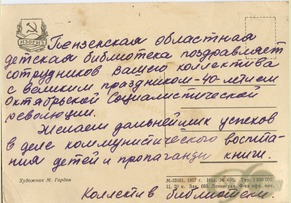 Пензенская областная
детская библиотека поздравляет
сотрудников вашего коллектива
с великим праздником-40-летием
Октябрьской Социалистической
революции.
Желаем дальнейших успехов
в деле коммунистического воспита-
ния детей и пропаганды книги.
Художник М. Гордон
Коллектив библиотеки.